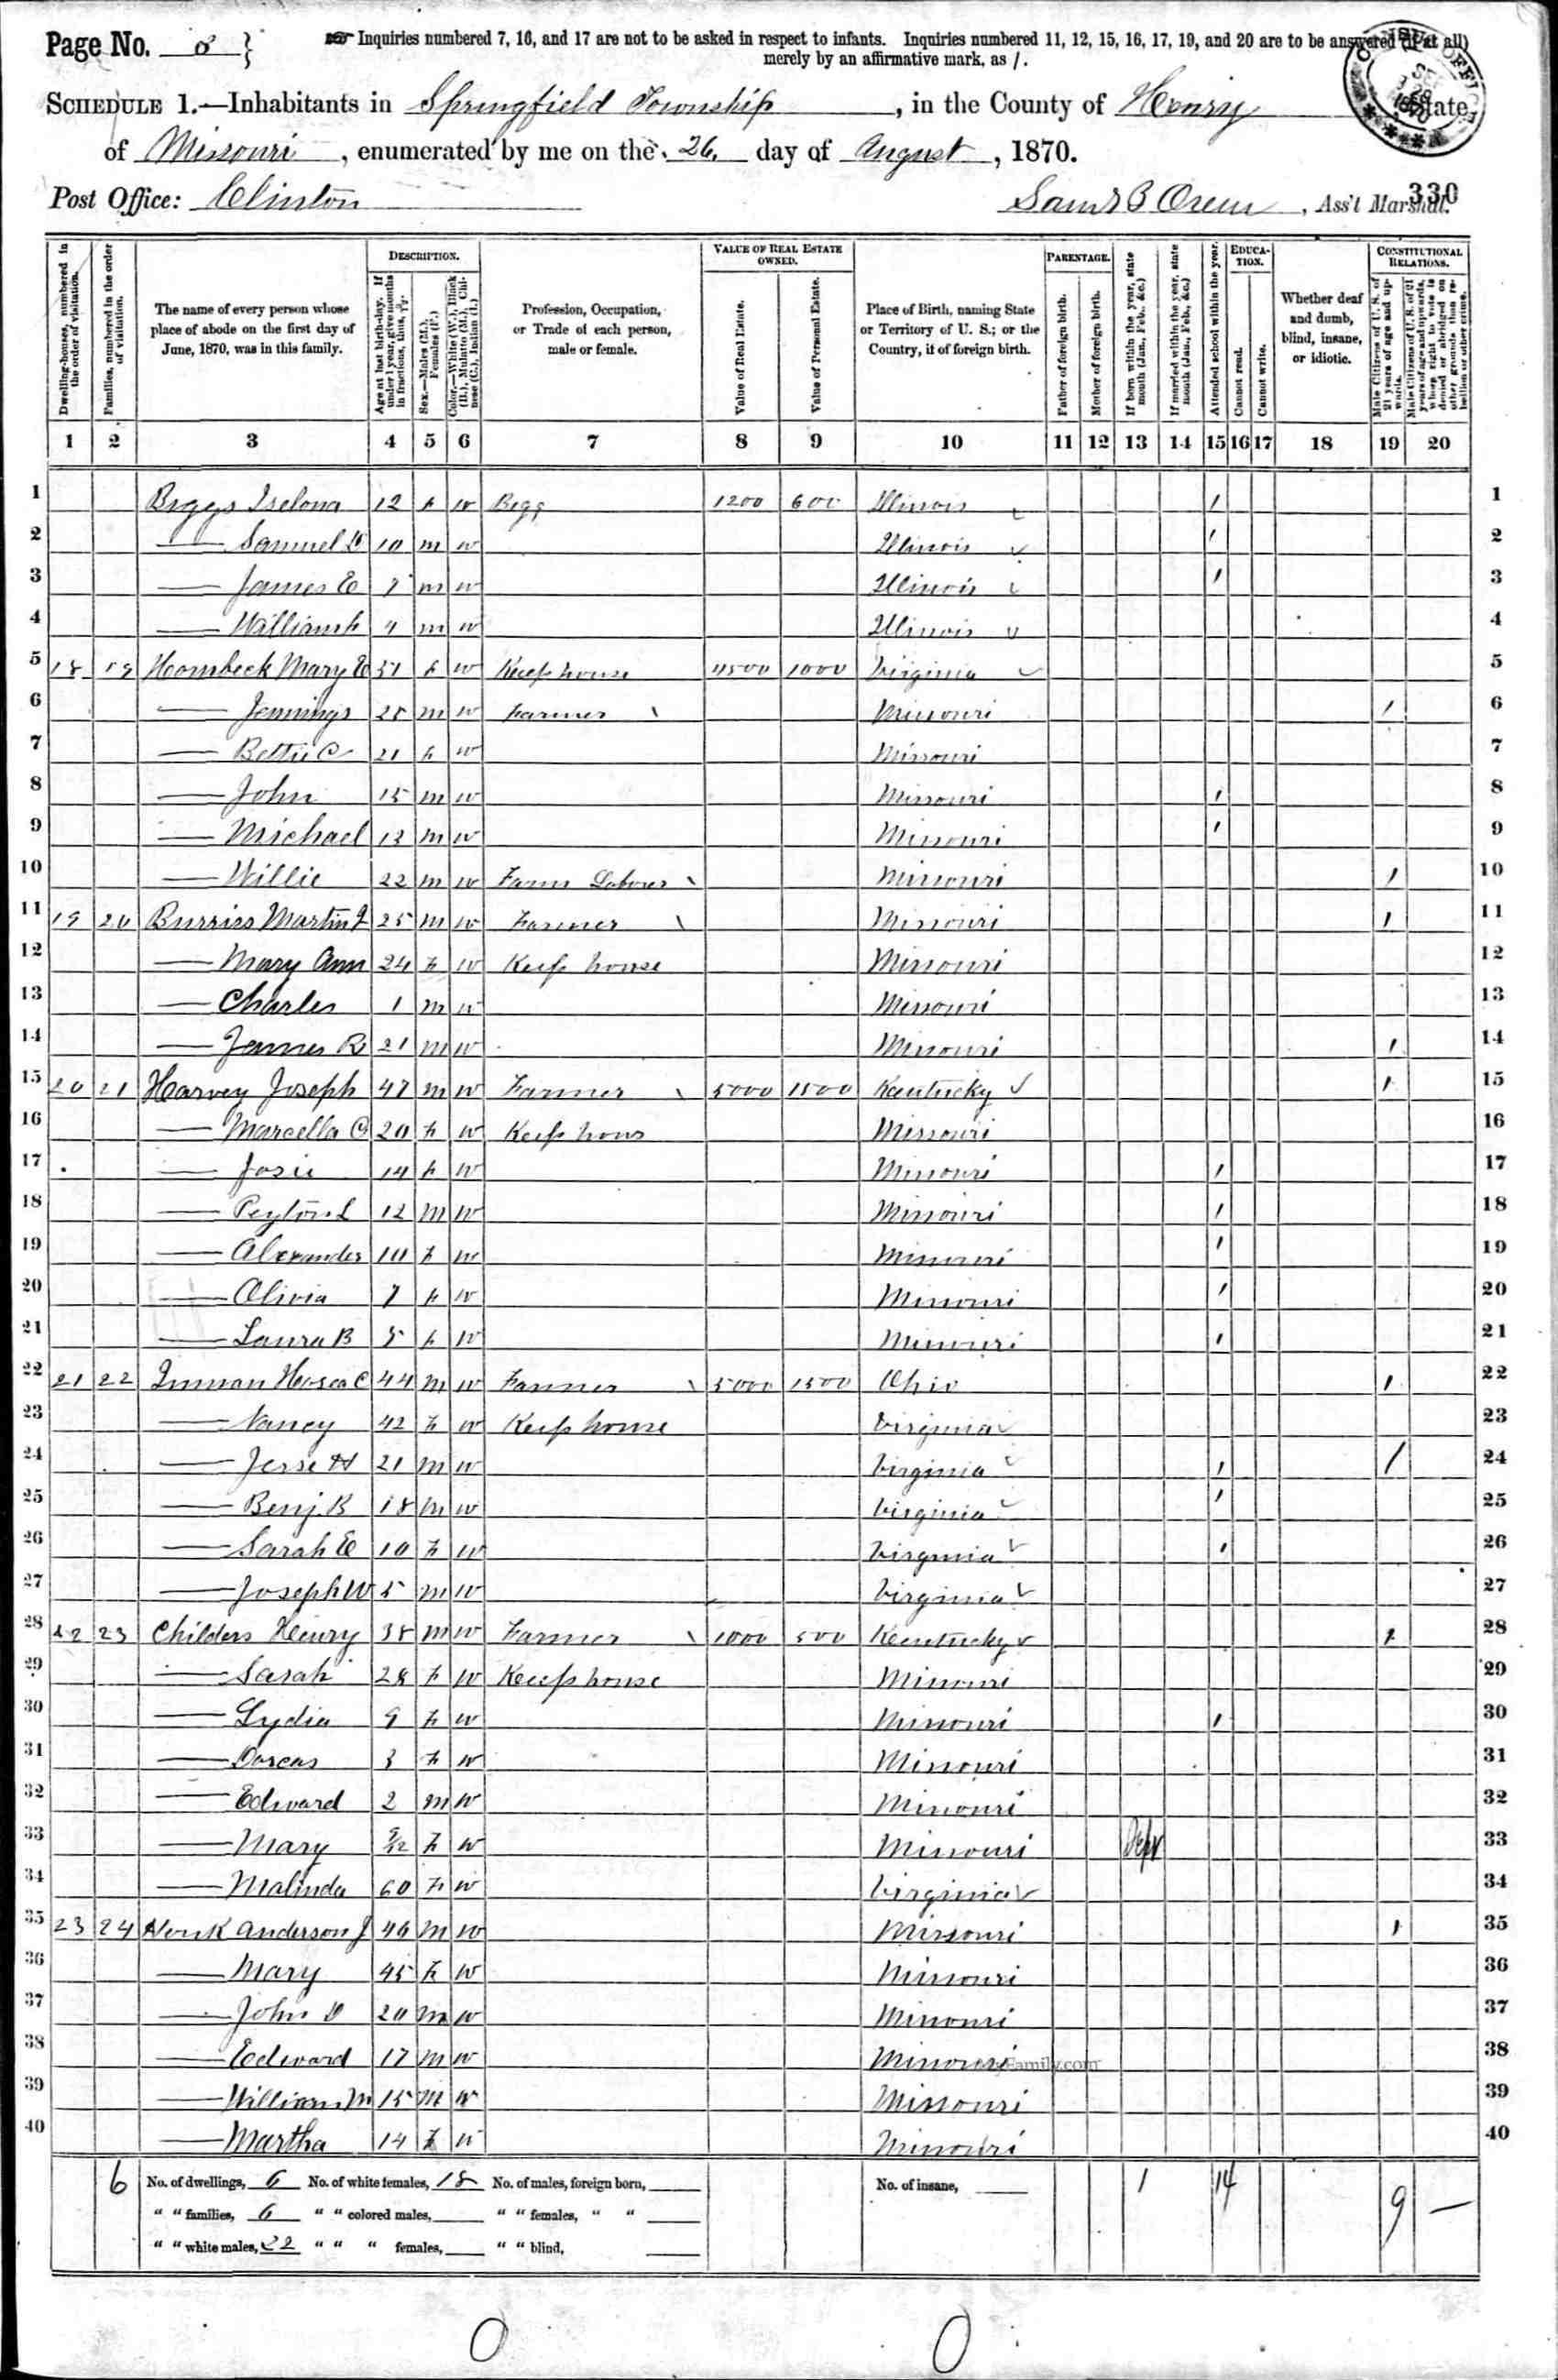 Page No. 8 }
Inquiries numbered 7, 16, and 17 are not to be asked in respect to infants. Inquiries numbered 11, 12, 15, 16, 17, 19, and 20 are to be answered (if at all)
merely by an affirmative mark, as /.
SCHEDULE 1.—Inhabitants in Springfield Township, in the County of Henry State
of Missouri, enumerated by me on the 26. day of August, 1870.
330
Post Office: Clinton Ass't Marshal.
DESCRIPTION. VALUE OF REAL ESTATE OWNED. PARENTAGE. EDUCATION. CONSTITUTIONAL RELATIONS.
Dwelling-houses, numbered in the order of visitation.
Families, numbered in the order of visitation.
The name of every person whose place of abode on the first day of June, 1870, was in this family.
Sex.—Males (M.), Females (F.)
Profession, Occupation, or Trade of each person, male or female.
Value of Real Estate.
Value of Personal Estate.
Place of Birth, naming State or Territory of U. S.; or the Country, if of foreign birth.
Father of foreign birth.
Mother of foreign birth.
If born within the year, state month (Jan., Feb., &c.)
If married within the year, state month (Jan., Feb., &c.)
Attended school within the year.
Cannot read.
Cannot write.
Whether deaf and dumb, blind, insane, or idiotic.
Male Citizens of U. S. of 21 years of age and upwards.
1 2 3 4 5 6 7 8 9 10 11 12 13 14 15 16 17 18 19 20
1 Biggs 12 f w 1200 600 Illinois / 1
2 — Samuel 10 m w Illinois / 2
3 — James E 7 m w Illinois / 3
4 — William 4 m w Illinois 4
5 18 19 Hornbeck Mary E 51 f w Keep house 4500 1000 Virginia 5
6 — Jennings 25 m w Farmer Missouri / 6
7 — Bettie C 21 f w Missouri 7
8 — John 15 m w Missouri / 8
9 — Michael 13 m w Missouri / 9
10 — Willie 22 m w Farm Laborer Missouri / 10
11 19 20 Burriss Martin J 25 m w Farmer Missouri / 11
12 — Mary Ann 24 f w Keep house Missouri 12
13 — Charles 1 m w Missouri 13
14 — James R 21 m w Missouri / 14
15 20 21 Harvey Joseph 47 m w Farmer 5000 1500 Kentucky / 15
16 — Marcella C 20 f w Keep hous Missouri 16
17 — Josie 14 f w Missouri / 17
18 — Peyton L 12 m w Missouri / 18
19 — Alexander 10 f w Missouri / 19
20 — Olivia 7 f w Missouri / 20
21 — Laura B f w Missouri / 21
22 21 22 Inman Hosea C 44 m w Farmer 5000 1500 Ohio / 22
23 — Nancy 42 f w Keep house Virginia 23
24 — Jesse H 21 m w Virginia / / 24
25 — Benj. B 18 m w Virginia / 25
26 — Sarah E 10 f w Virginia / 26
27 — Joseph W 5 m w Virginia 27
28 22 23 Childers Henry 38 m w Farmer 1000 500 Kentucky 1 28
29 — Sarah 28 f w Keep house Missouri 29
30 — Lydia 9 f w Missouri / 30
31 — Dorcas 3 f w Missouri 31
32 — Edward 2 m w Missouri 32
33 — Mary 9/12 f w Missouri 33
34 — Malinda 60 f w Virginia 34
35 23 24 Anderson J 46 m w Missouri / 35
36 — Mary 45 f w Missouri 36
37 — John D 20 m w Missouri 37
38 — Edward 17 m w Missouri 38
MyFamily.com
39 — William M 15 m w Missouri 39
40 — Martha 14 f w Missouri 40
6 No. of dwellings, 6 No. of white females, 18 No. of males, foreign born, No. of insane, 1 14 9 —
" " families, 6 " " colored males, " " females, " "
" " white males, 22 " " " females, " " blind,